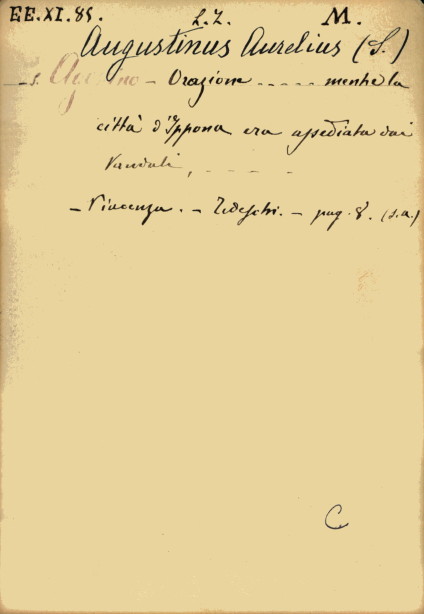 EE.XI.85. L.Z. M.
Augustinus Aurelius (S.)
– S. Agostino – Orazione ..... mentre la
città d'Ippona era assediata dai
Vandali, - - - -
– Vincenza. – Tedeschi. – pag. 8. (s.a.)
C